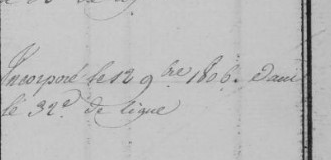 Incorporé le 12 9bre 1806. dans
le 32e de ligne